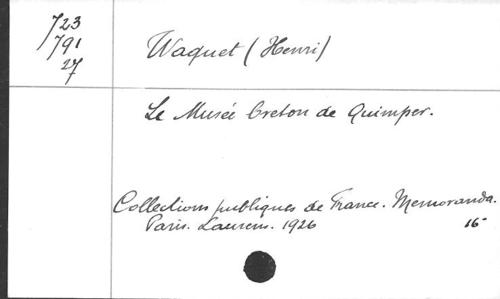 723
791
27
Waquet (Henri)
Le Musée breton de Quimper.
Collections publiques de France. Memoranda.
Paris. Laurens. 1926 16°